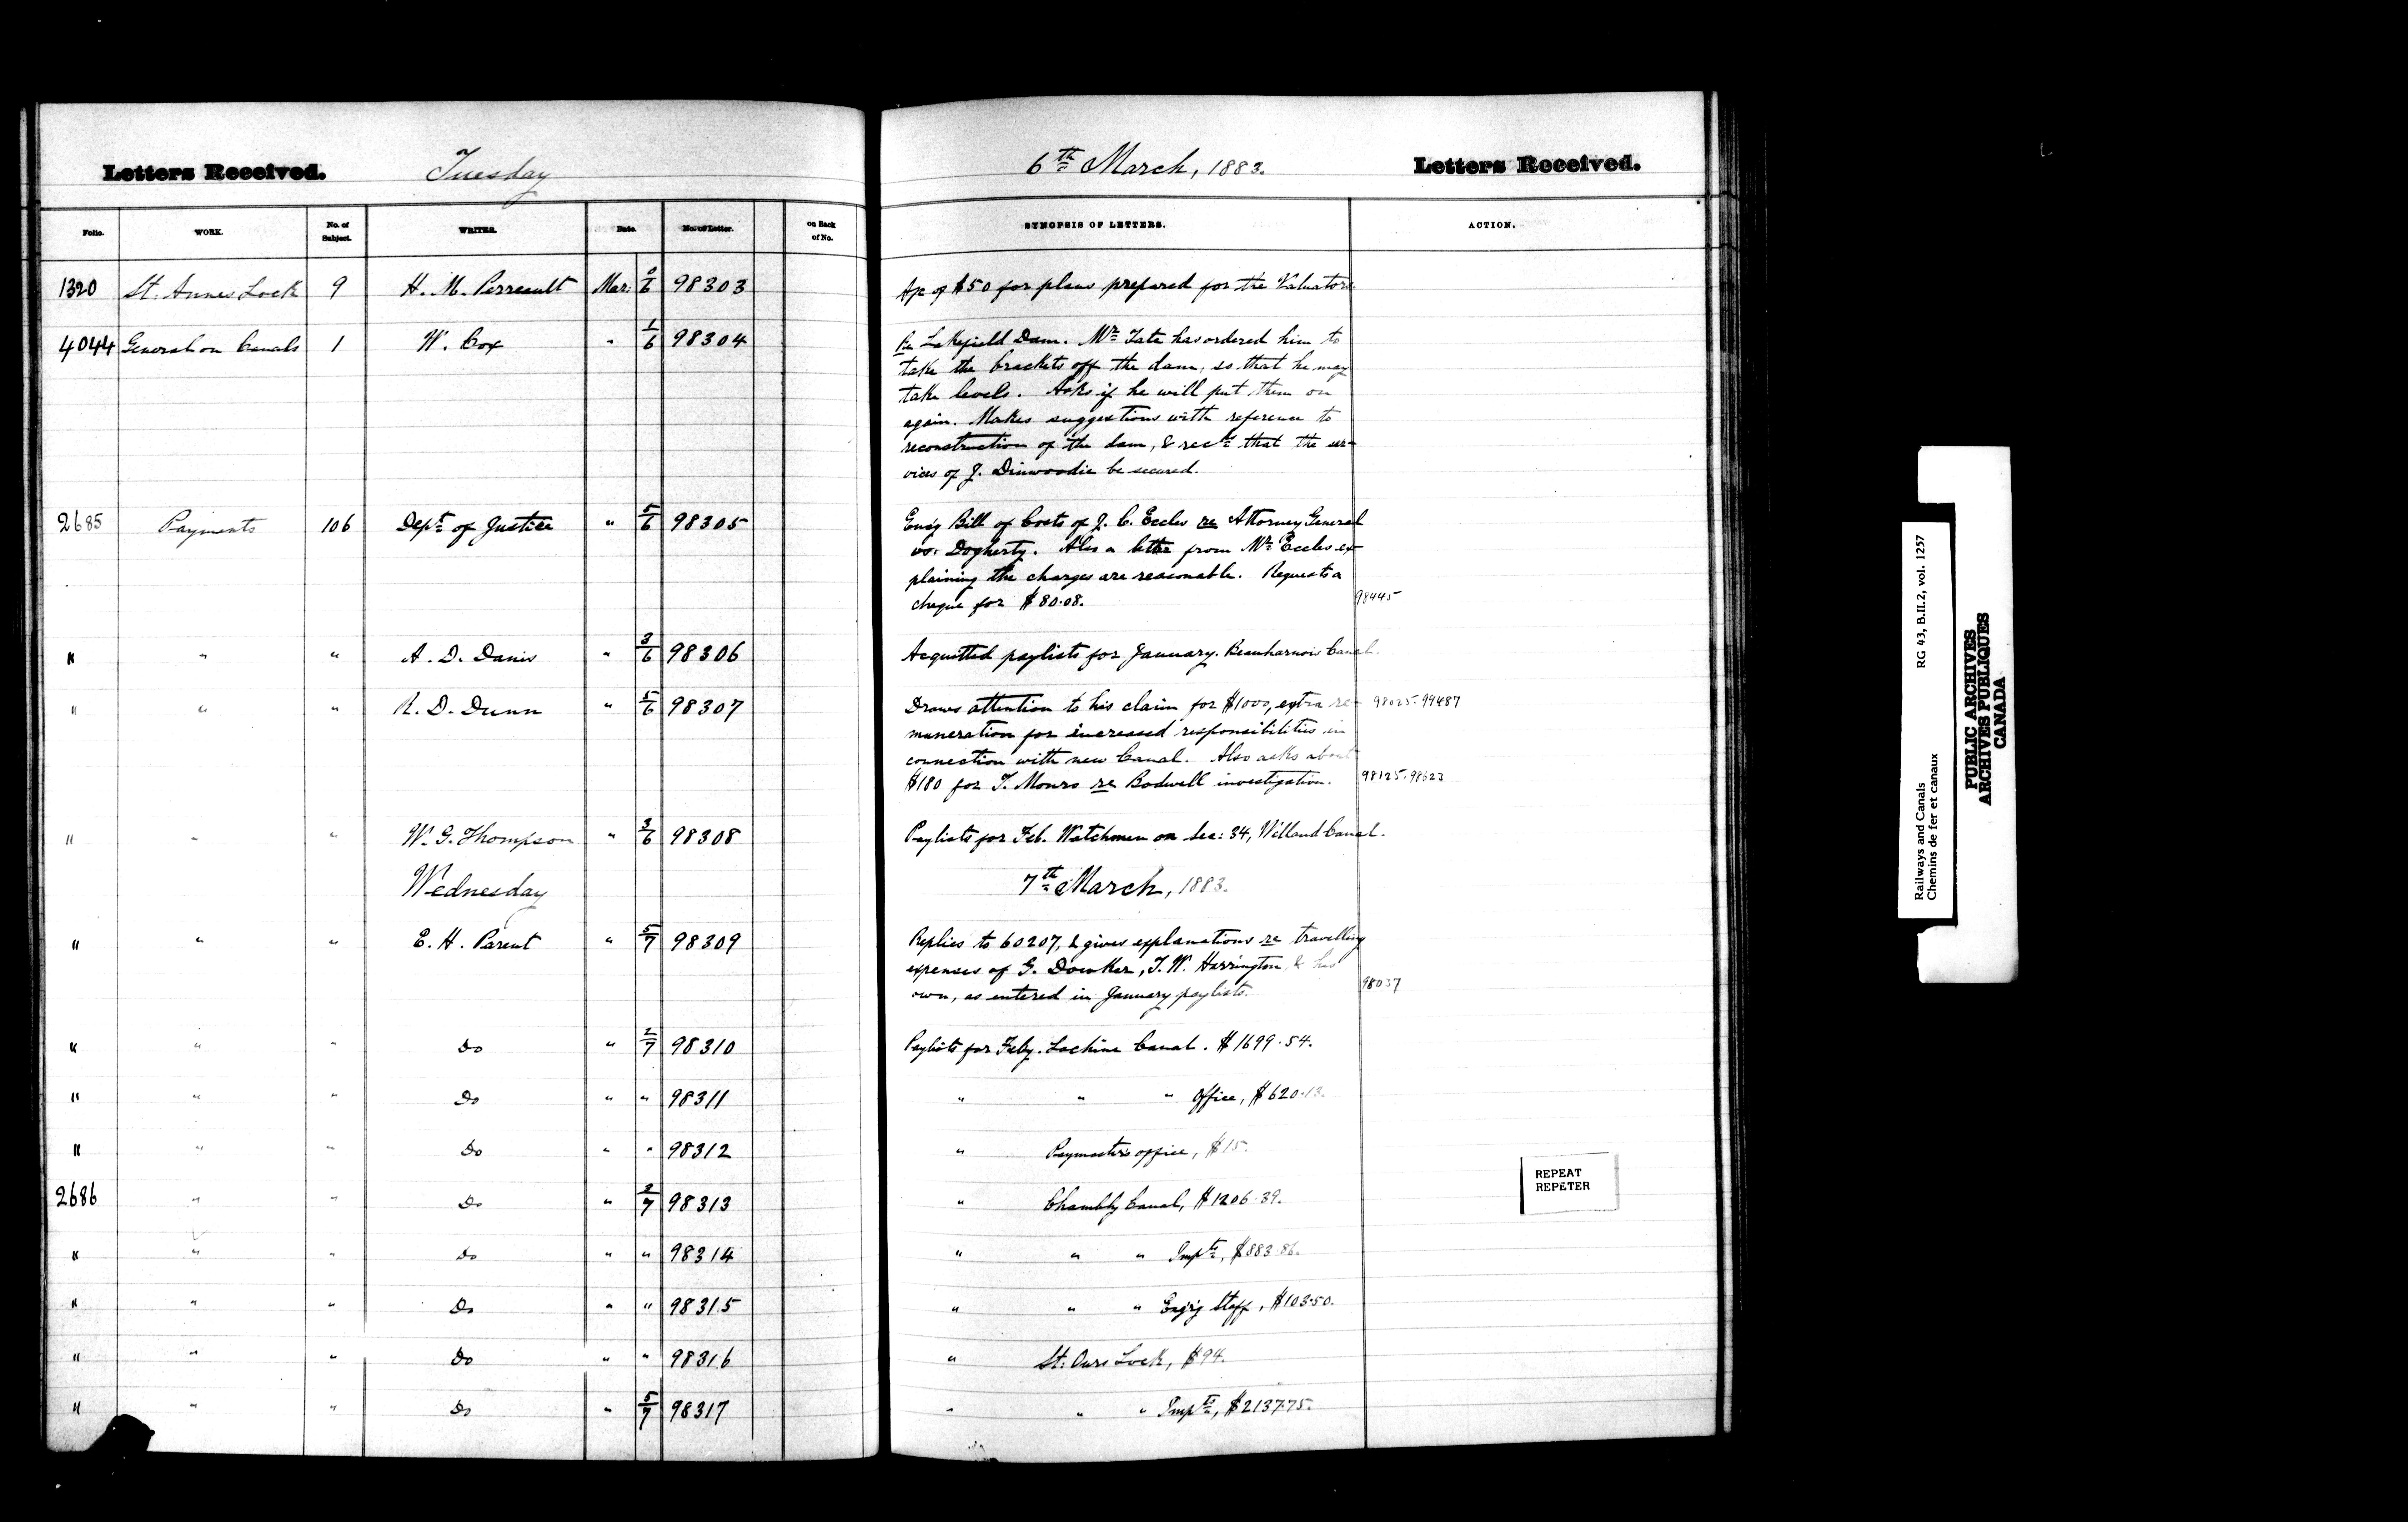 Letters Received. Tuesday
Folio. WORK. No. of Subject. WRITER. Date. No. of Letter. on Back of No.
1320 St. Annes Lock 9 H. M. Perreault Mar. 6 98303
4044 General on Canals 1 W. Cox " 1/6 98304
2685 Payments 106 Dept. of Justice " 5/6 98305
" " " A. D. Danis " 3/6 98306
" " " R. D. Dunn " 5/6 98307
" " " W. G. Thompson " 3/6 98308
Wednesday
" " " E. H. Parent " 5/7 98309
" " " Do " 2/7 98310
" " " Do " " 98311
" " " Do " " 98312
2686 " " Do " 3/7 98313
" " " Do " " 98314
" " " Do " " 98315
" " " Do " " 98316
" " " Do " 5/7 98317
6th March, 1883. Letters Received.
SYNOPSIS OF LETTERS. ACTION.
A/c of $50 for plans prepared for the Valuators
Re Lakefield Dam. Mr Tate has ordered him to
take the brackets off the dam, so that he may
take levels. Asks if he will put them on
again. Makes suggestions with reference to
reconstruction of the dam, & recds that the ser-
vices of J. Dinwoodie be secured.
Encg Bill of Costs of J. C. Eccles re Attorney General
vs. Dogherty. Also a letter from Mr Eccles ex-
plaining the charges are reasonable. Requests a
cheque for $80.08. 98445
Acquitted paylists for January. Beauharnois Canal.
Draws attention to his claim for $1000, extra re- 98025. 99487
muneration for increased responsibilities in
connection with new Canal. Also asks about
$180 for T. Monro re Bodwell investigation. 98125, 98623
Paylists for Feb. Watchmen on Sec: 34, Welland Canal.
7th March, 1883.
Replies to 60207, & gives explanations re travelling
expenses of G. Dowker, T. W. Harrington, & his
own, as entered in January paylists. 98037
Paylists for Feby. Lachine Canal. $1699.54.
" " " Office, $620.13.
" Paymaster's office, $15.
" Chambly Canal, $1206.39.
" " " Impts, $883.86.
" " " Eng'g Staff, $103.50.
" St. Ours Lock, $94.
" " " Impts, $2137.75.
REPEAT
REPETER
Railways and Canals RG 43, B.II.2, vol. 1257
Chemins de fer et canaux
PUBLIC ARCHIVES
ARCHIVES PUBLIQUES
CANADA